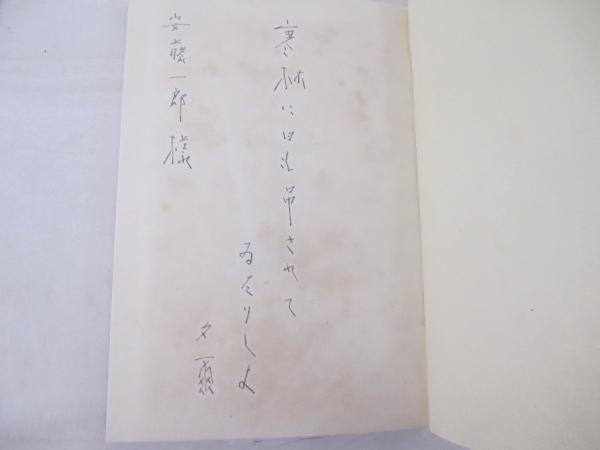 寒林に日も吊されて
ゐたりしよ
夕爾
安藤一郎様